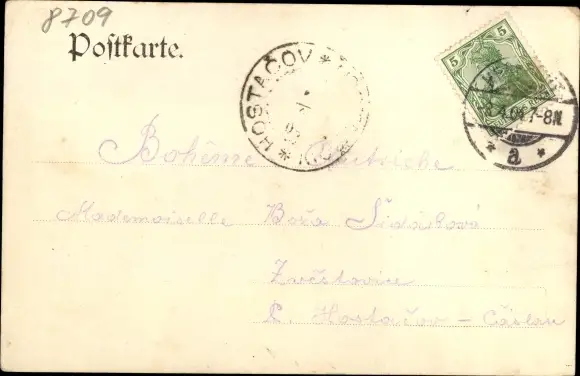 8709
Postkarte.
HOSTAČOV
5 5
7-8N.
* a *
Bohême Autriche
Mademoiselle Boža Šidáková
Zvěstovice
P. Hostačov - Čáslau